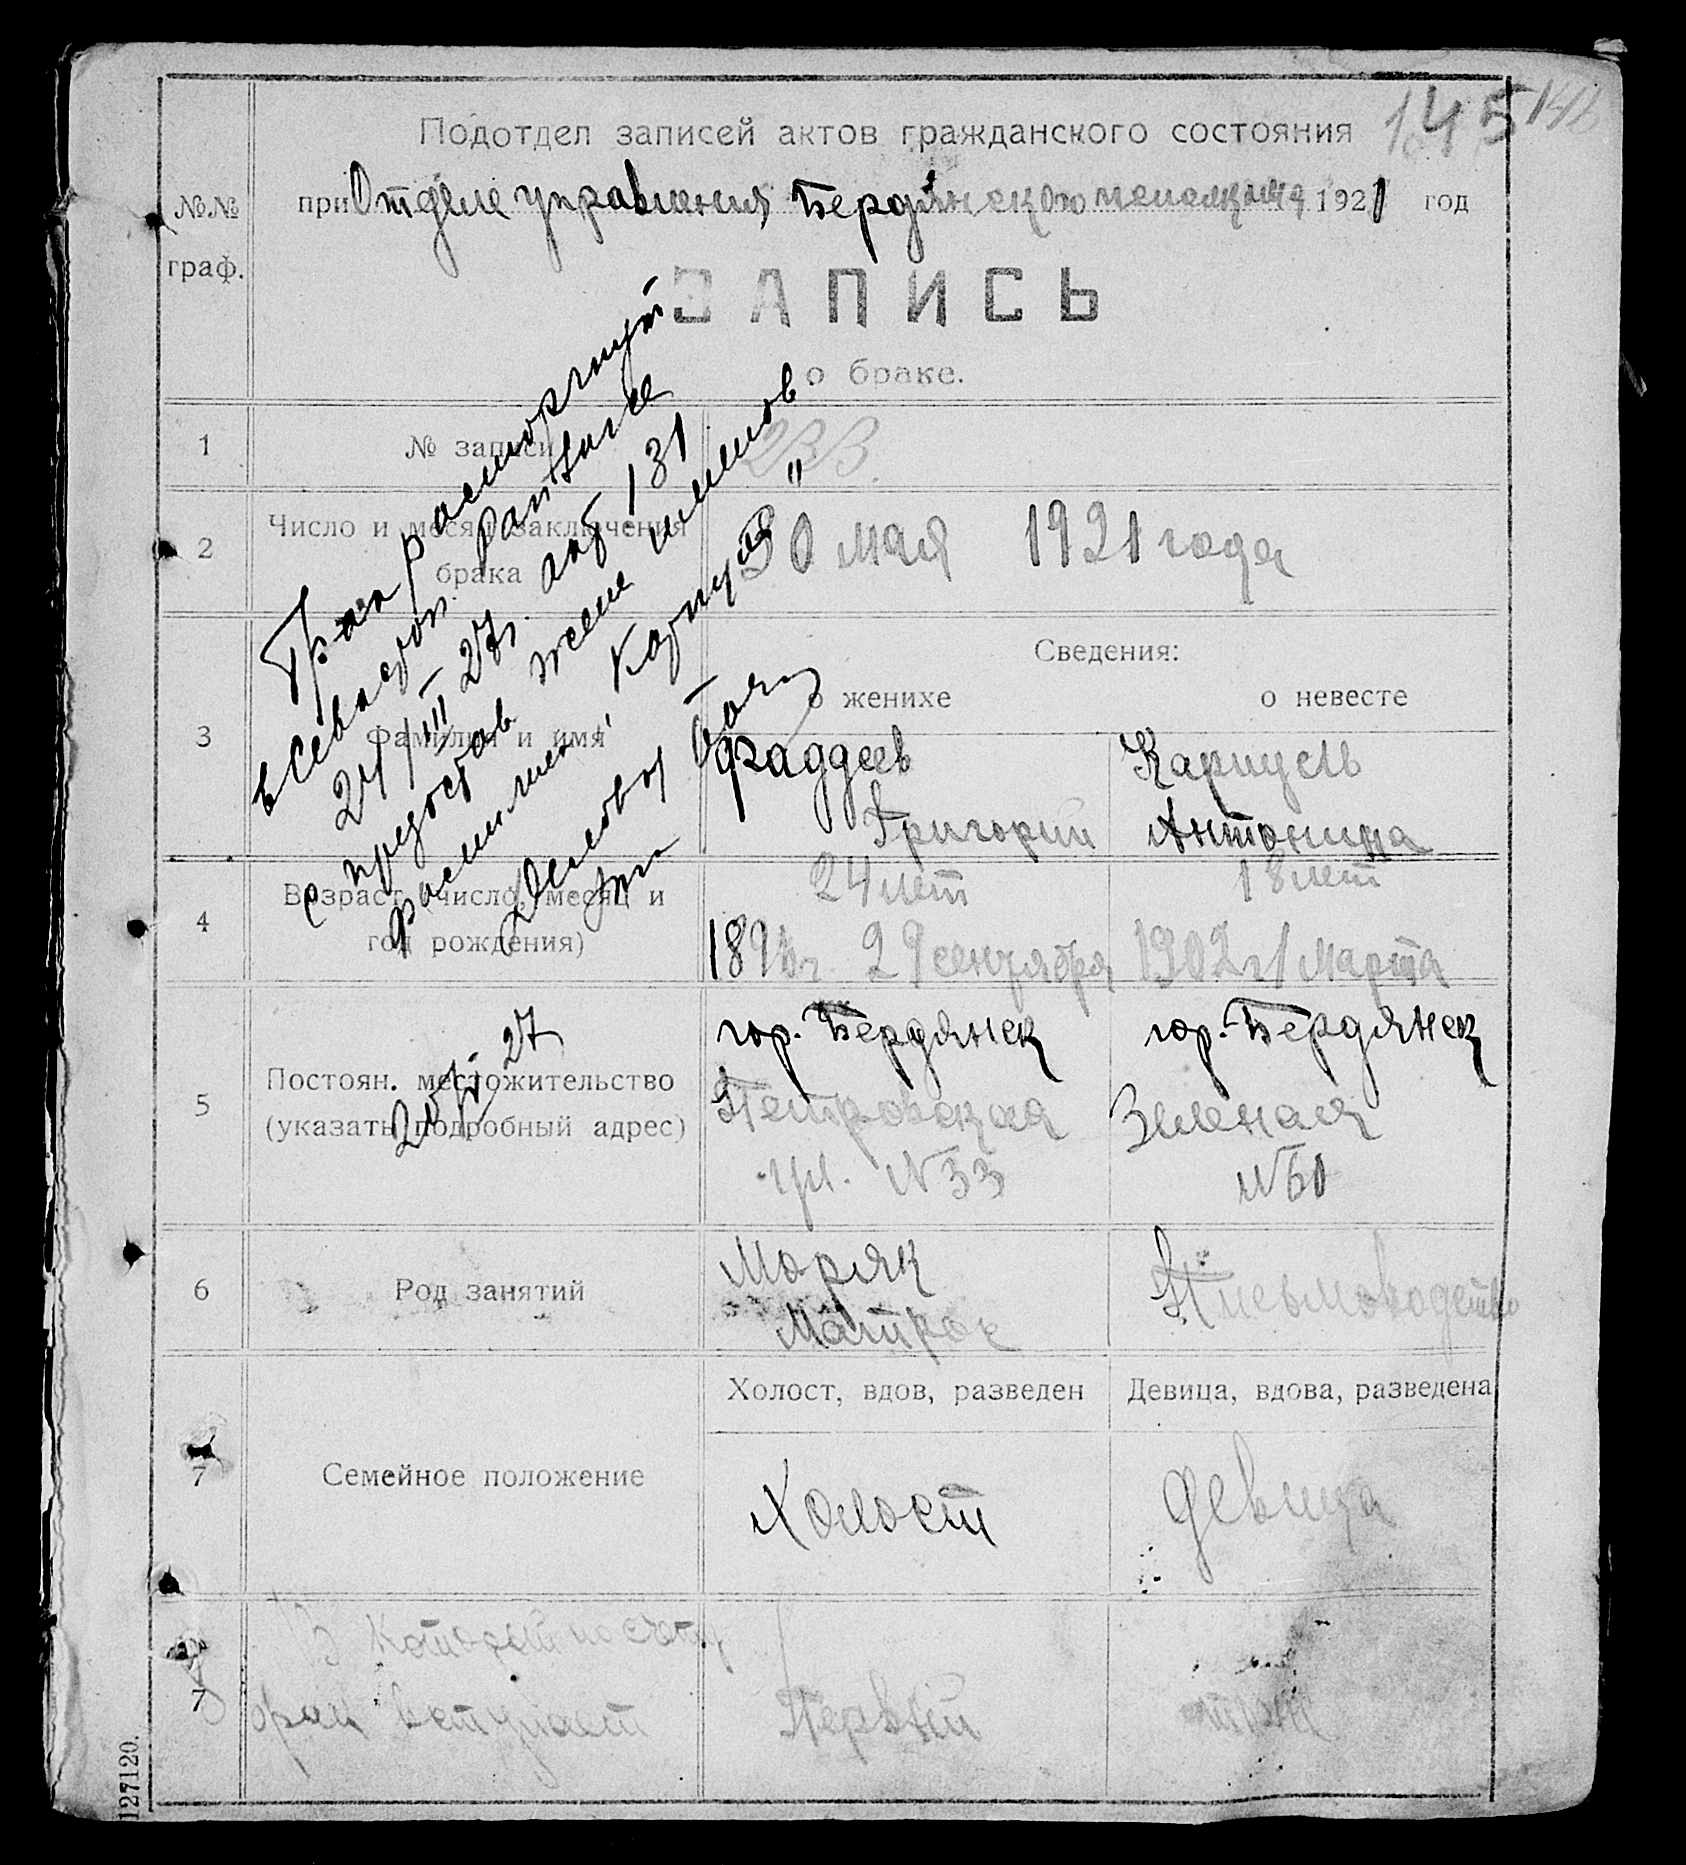 145
Подотдел записей актов гражданского состояния
№№
граф.
при Отделе управления Бердянского исполкома 1921 год
ЗАПИСЬ
о браке.
1
№ записи
233
2
Число и месяц заключения
брака
30 мая 1921 года
3
Фамилия и имя
Сведения:
о женихе
о невесте
Фаддеев
Григорий
Карпусь
Антонина
4
Возраст (число, месяц и
год рождения)
24 лет
189 г. 29 сентября
18 лет
1902 г 1 марта
5
Постоян. местожительство
(указать подробный адрес)
гор. Бердянск
Петровская
ул. №33
гор. Бердянск
Зеленая
№61
6
Род занятий
Моряк
Матрос
Письмоводство
7
Семейное положение
Холост, вдов, разведен
Девица, вдова, разведена
Холост
девица
7
В который по счету
брак вступает
Первый
Брак расторгнут
в Севастоп.
24/III 27г. акт 131
с предостав жене
фамилии
Деловод
27
127120.